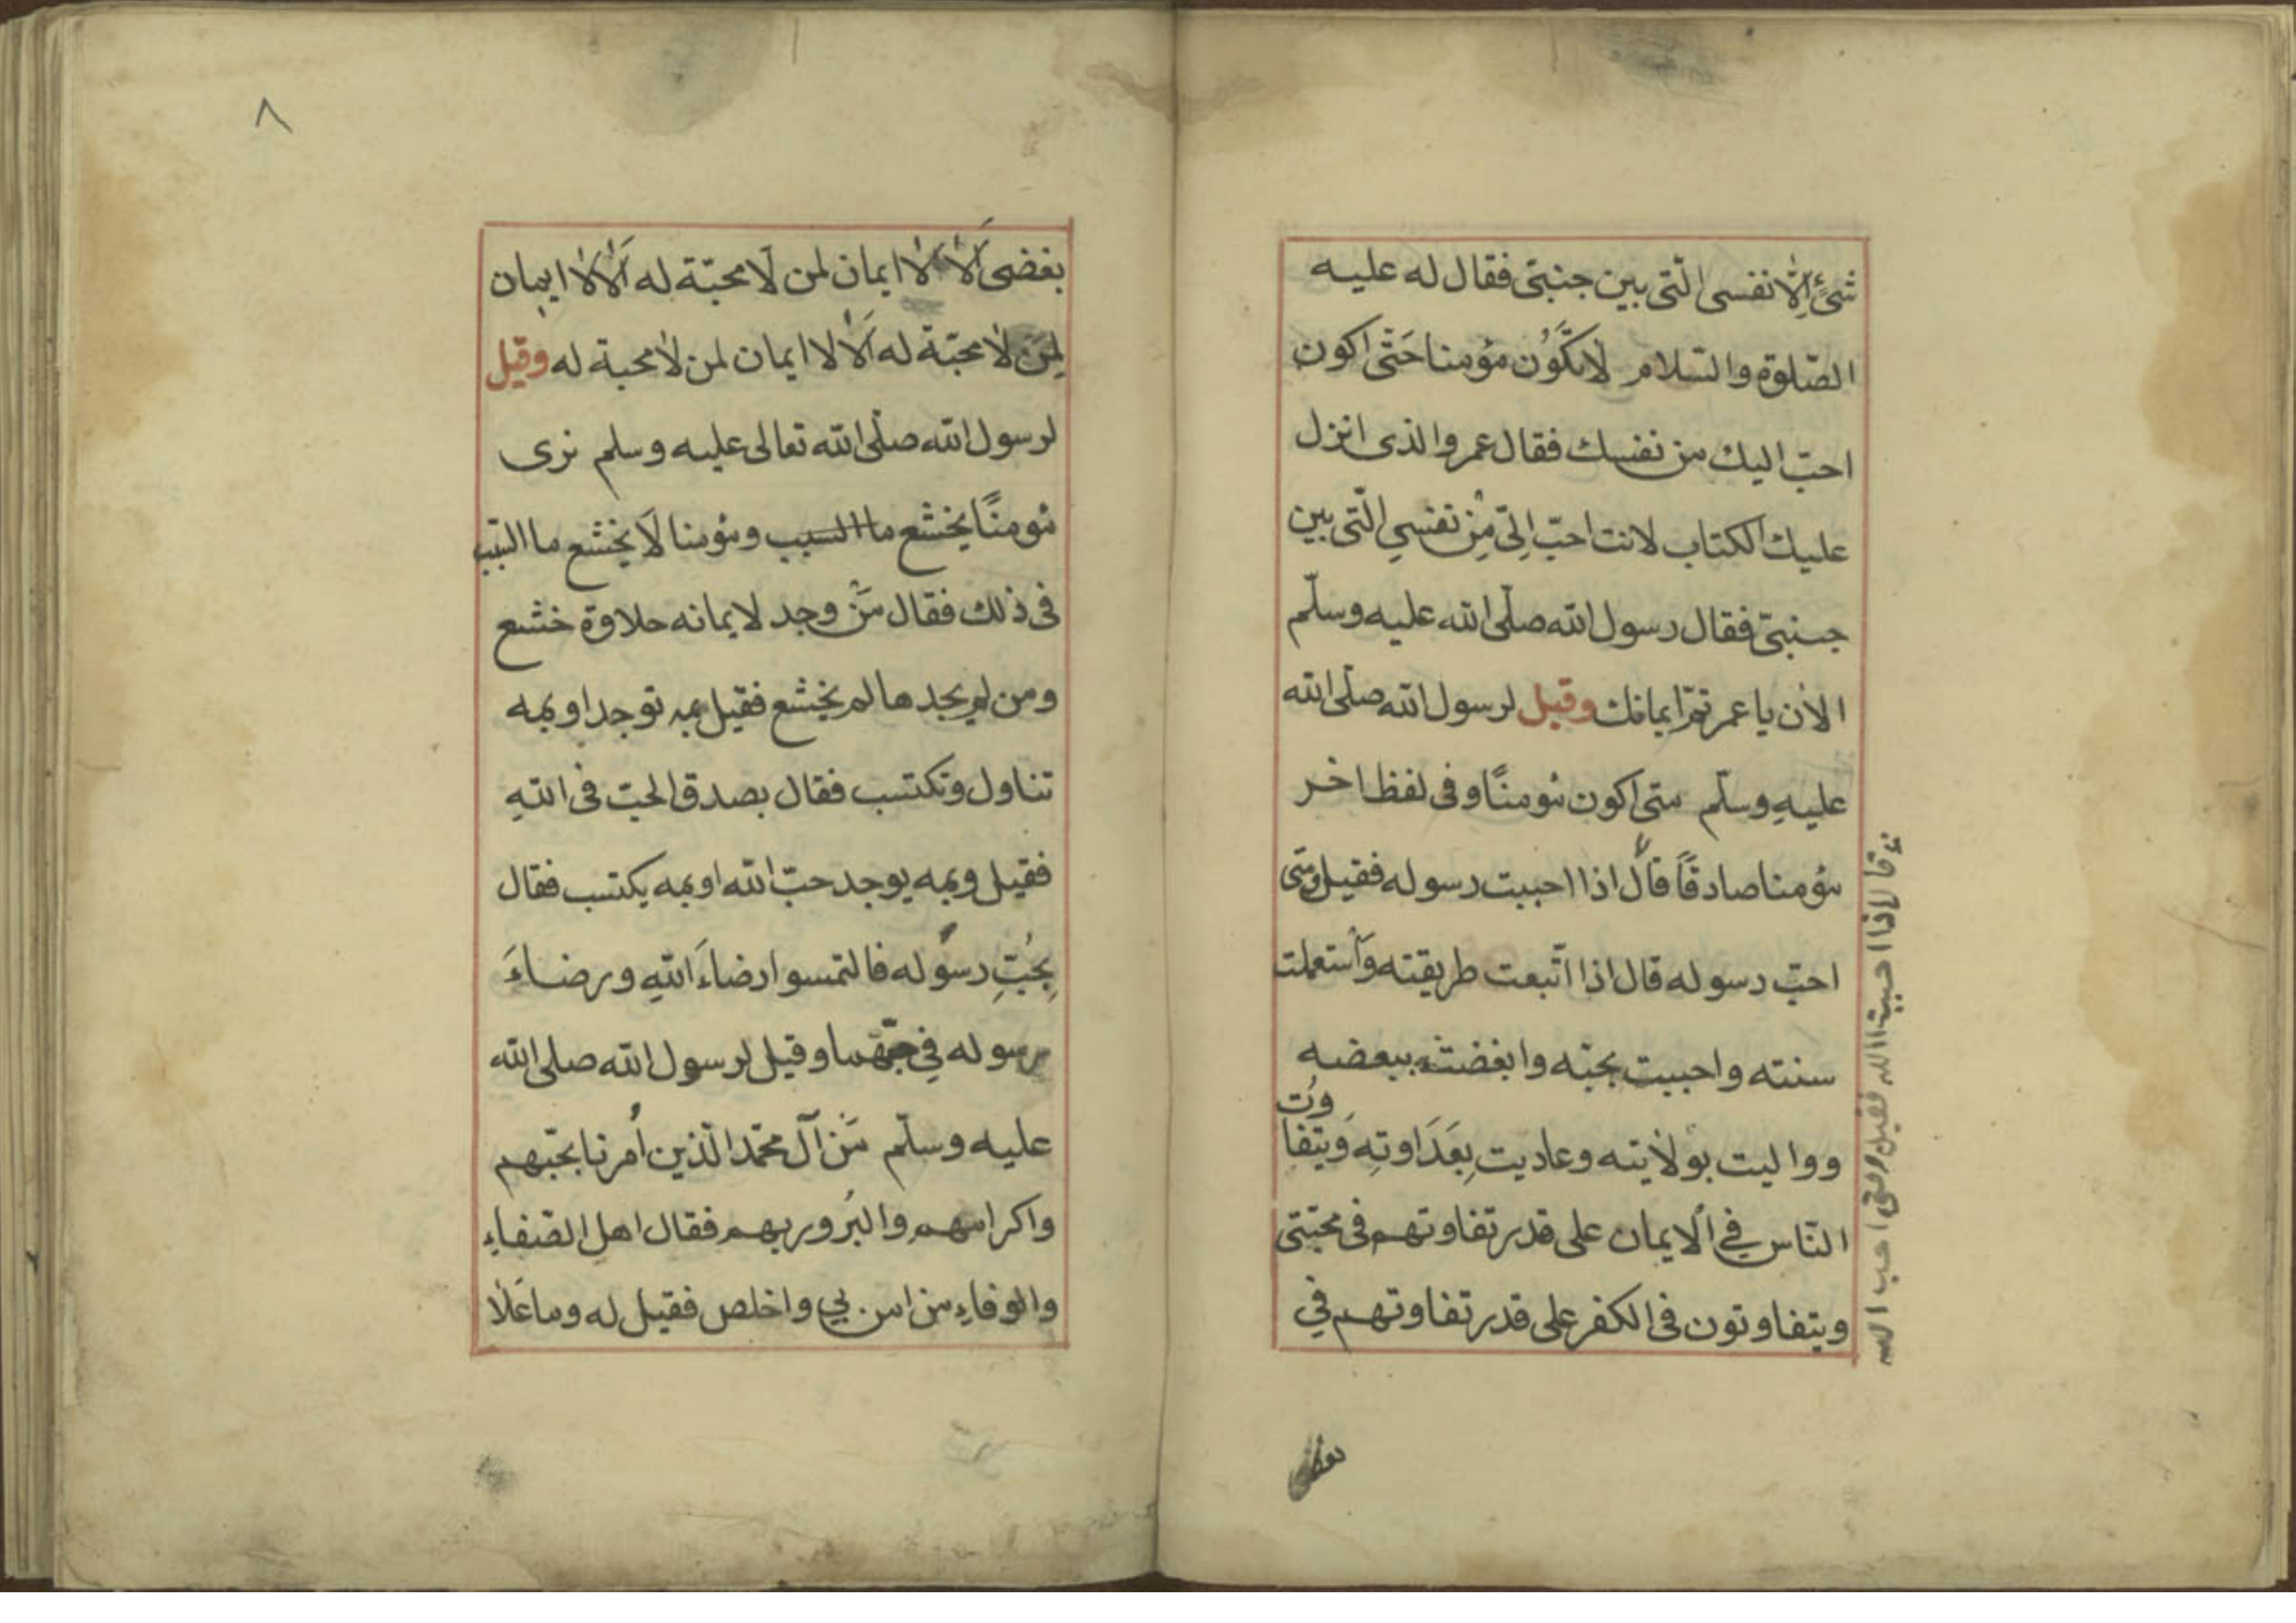 شئ إلّا نفسى الّتى بين جنبتى فقال له عليه
الصّلوة والسّلام لا تكون مؤمنا حَتّى اكون
احبّ اليك من نفسك فقال عمر والذى انزل
عليك الكتاب لانت احبّ اِلىّ مِنْ نفسى الّتى بين
جنبىّ فقال رسول الله صلّى الله عليه وسلّم
الأن يا عمر تمّ ايمانك وقيل لرسول الله صلّى الله
عليهِ وسلّم متى اكون مؤمنًا وفى لفظ اخر
مؤمنا صادقًا قال اذا احببت رسوله فقيل ومتى
احبّ رسوله قال اذا اتّبعت طريقته وٱستعملت
سنته واحببت بحبّه وابغضت ببغضه
وواليت بولايته وعاديت بِعَدَاوتِهِ وَيتفا
وَت
النّاس فى ٱلايمان على قدر تفاوتهم فى محبّتى
ويتفاوتون فى الكفر على قدر تفاوتهم فى
قال اذا احببت الله فقيل ومتى احب الله
بغضى
٨
بغضى اَلَا لا ايمان لمن لَا محبّة له اَلَا لا ايمان
لِمَن لا محبّة له اَلَا لا ايمان لمن لا محبة له وقيل
لرسول الله صلّى الله تعالى عليه وسلم نرى
مؤمنًا يخشع ما السبب ومؤمنا لَا يخشع ما السّبب
فى ذلك فقال مَنْ وجد لايمانه حلاوة خشع
ومن لم يجدها لم يخشع فقيل بمه توجد او بمه
تناول وتكتسب فقال بصدق الحبّ فى اللهِ
فقيل وبمه يوجد حبّ الله او بمه يكتسب فقال
بِحُبِّ رسوله فالتمسوا رضاءَ اللهِ ورضاءَ
رسوله فى حبّهما وقيل لرسول الله صلى الله
عليه وسلّم مَن آل محمّد الّذين اُمرنا بحبّهم
واكرامهم والبُرور بهم فقال اهل الصّفاءِ
والوفاءِ من امن بى واخلص فقيل له وما عَلَا